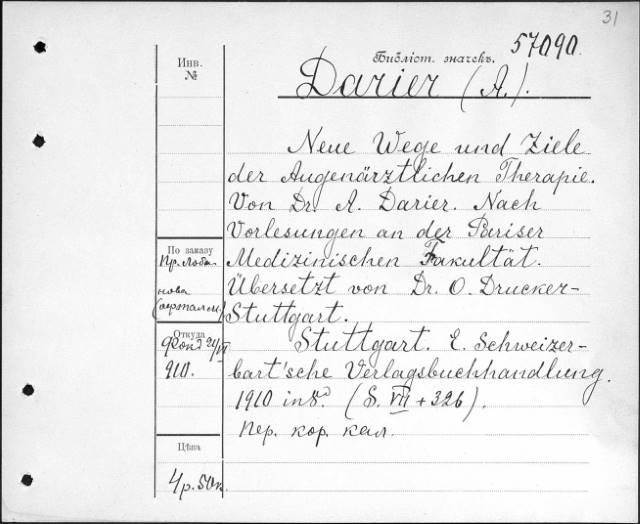 31
57090.
Инв.
№
Библіот. значекъ.
Darier (A.).
Neue Wege und Ziele
der Augenärztlichen Therapie.
Von Dr. A. Darier. Nach
Vorlesungen an der Pariser
По заказу
Medizinischen Fakultät.
Пр. Лоба-
нова
Übersetzt von Dr. O. Drucker-
Stuttgart.
Откуда
Stuttgart. E. Schweizer-
910.
bart'sche Verlagsbuchhandlung.
1910 in 8.º (S. VII + 326).
Пер. кор. кал.
Цѣна
4 р. 50 к.